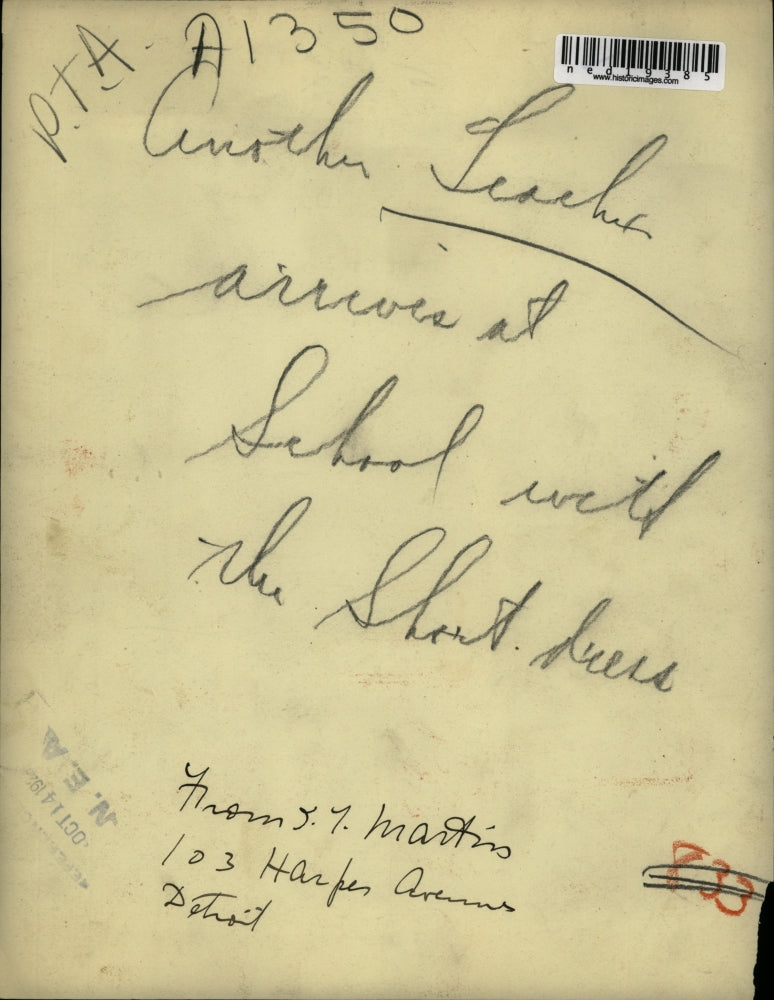 P.T.A. A1350
ned19385
www.historicimages.com
Another Teacher
arrives at
School with
the Short dress
N.E.A
OCT 14 19
From J. T. Martin
103 Harper Avenue
Detroit
833